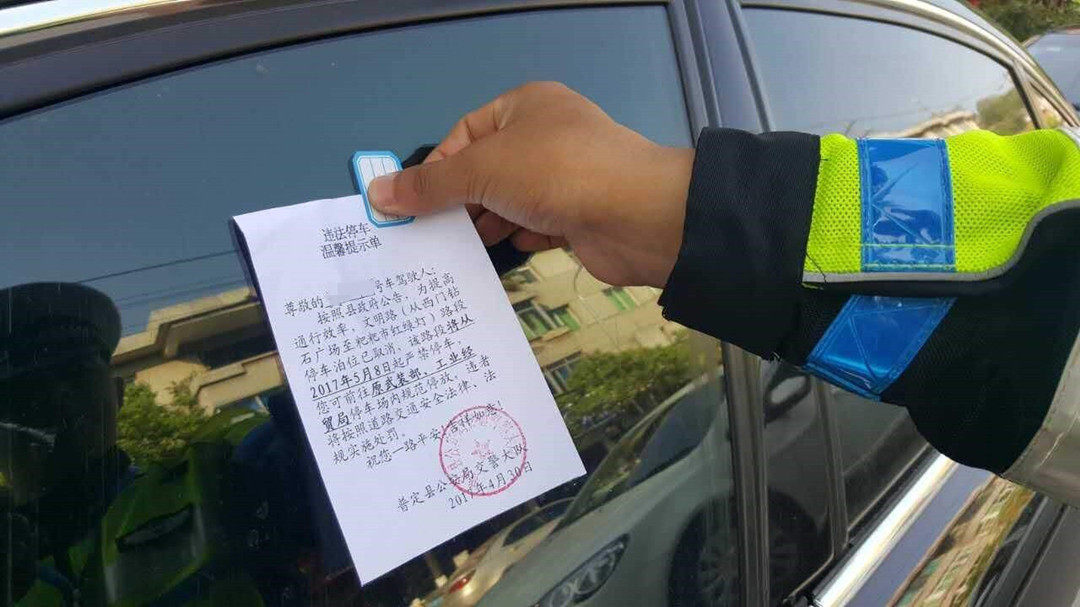 违法停车
温馨提示单
尊敬的 号车驾驶人：
按照县政府公告，为提高
通行效率，文明路（从西门钻
石广场至粑粑市红绿灯）路段
停车泊位已取消，该路段将从
2017年5月8日起严禁停车，
您可前往原武装部、工业经
贸局停车场内规范停放，违者
将按照道路交通安全法律、法
规实施处罚。
祝您一路平安！吉祥如意！
普定县公安局交警大队
2017年4月30日